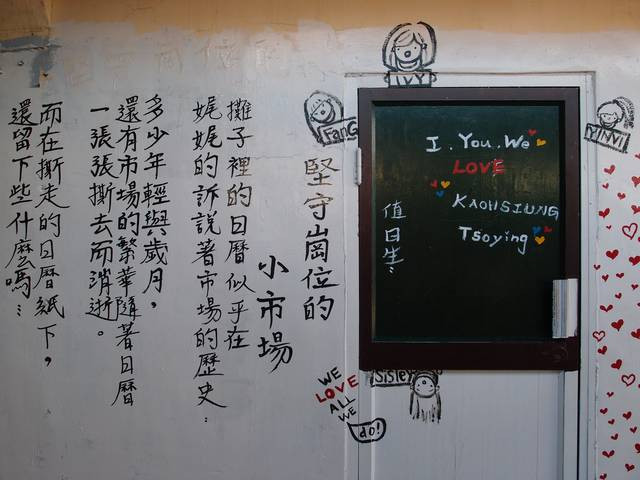 堅守崗位的
小市場
攤子裡的日曆似乎在
娓娓的訴說著市場的歷史：
多少年輕與歲月，
還有市場的繁華隨著日曆
一張張撕去而消逝。
而在撕走的日曆紙下，
還留下些什麼嗎…
IVY
FanG
YINVI
I. You. We
LOVE
KAOHSIUNG
Tsoying
值日生：
Sisley
WE
LOVE
ALL
WE
do!